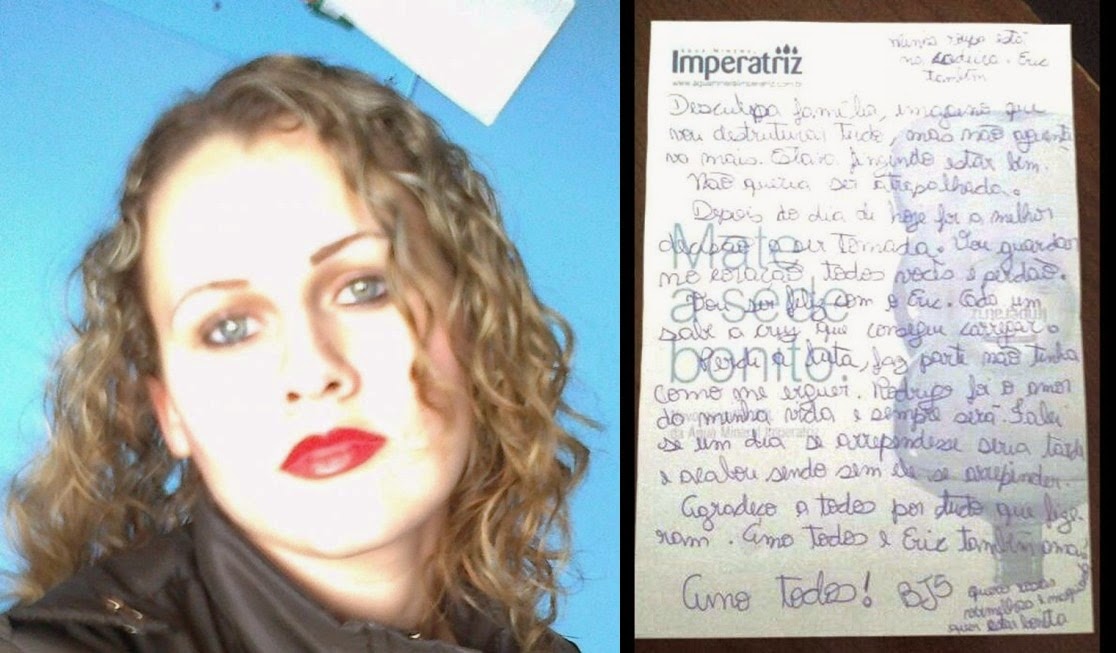 ÁGUA MINERAL
Imperatriz
www.aguamineralimperatriz.com.br
minha roupa está
na cadeira. Eric
também
Desculpa família, imagino que
vou destruturar tudo, mas não aguenta
va mais. Estava fingindo estar bem.
Não queria ser atrapalhada.
Depois do dia de hoje foi a melhor
decisão a ser tomada. Vou guardar
no coração todos vocês e perdão.
Vou ser feliz com o Eric. Cada um
sabe a cruz que consegue carregar.
Perdi a luta, faz parte não tinha
como me erguer. Rodrigo foi o amor
da minha vida e sempre será. Falei
se um dia se arrependesse seria tarde
e acabou sendo sem ele se arrepender.
Agradeço a todos por tudo que fize-
ram. Amo todos e Eric também
Amo todos! BJS
quero rosas
vermelhas e
quer estar bonita
Mate
a sede
bonito.
da Água Mineral Imperatriz